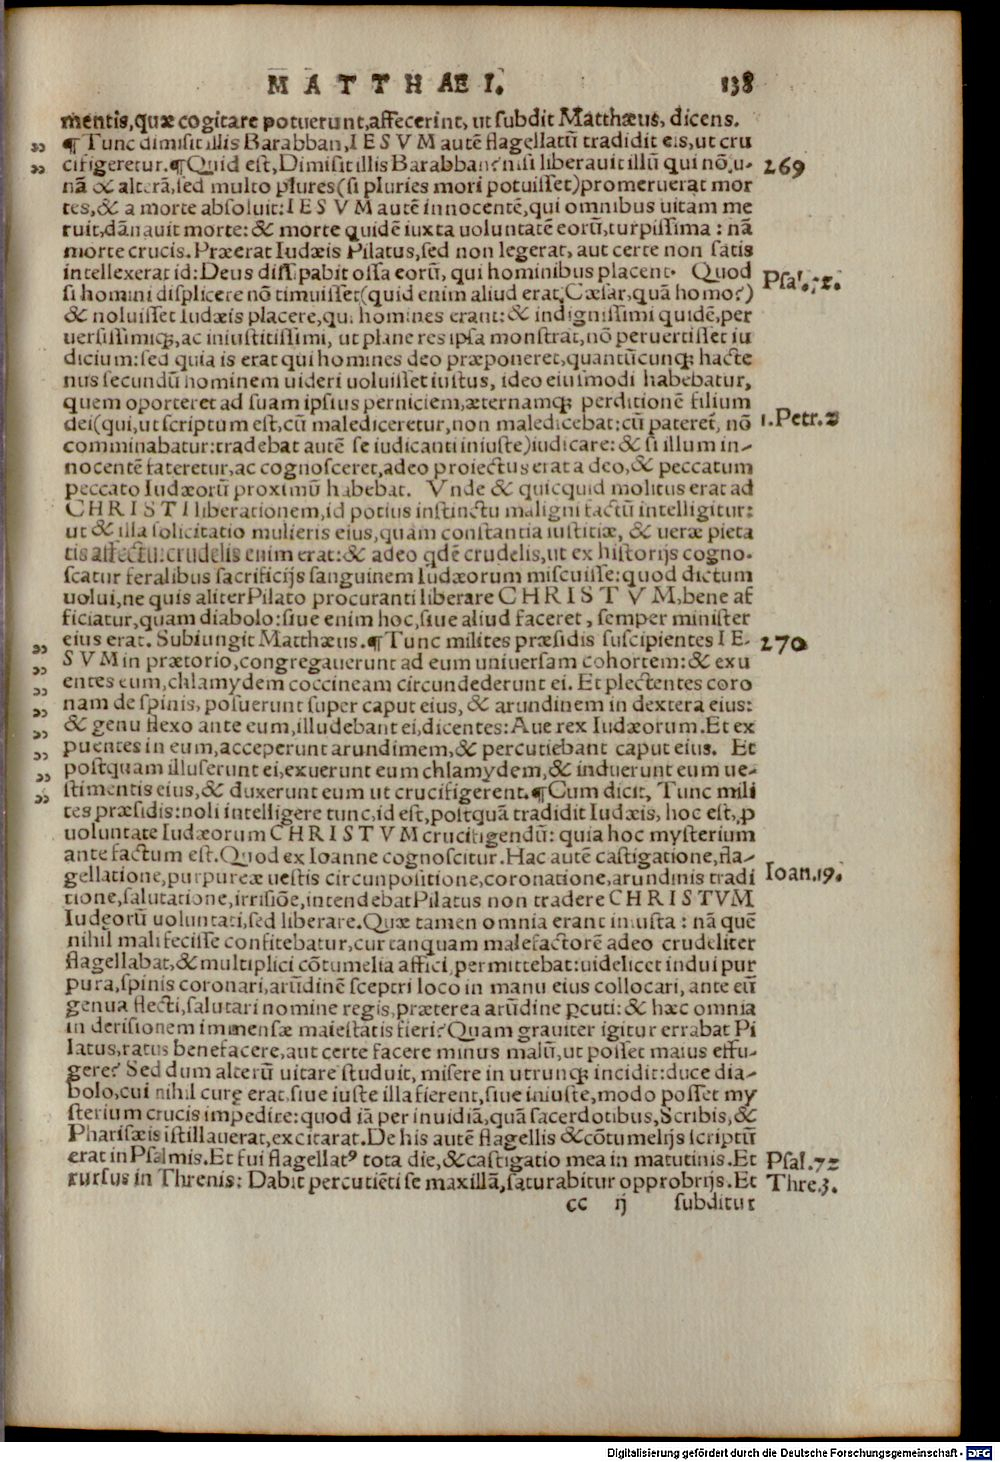 MATTHAEI. 138
mentis,quæ cogitare potuerunt,affecerint, ut subdit Matthæus, dicens.
¶Tunc dimisit illis Barabban,IESVM autē flagellatū tradidit eis,ut cru
cifigeretur.¶Quid est,Dimisit illis Barabban? nisi liberauit illū qui nō,u- 269
nā & alterā,sed multo plures(si pluries mori potuisset)promeruerat mor
tes,& a morte absoluit:IESVM autē innocentē,qui omnibus uitam me
ruit,dānauit morte:& morte quidē iuxta uoluntatē eorū,turpissima: nā
morte crucis.Præerat Iudæis Pilatus,sed non legerat, aut certe non satis
intellexerat id:Deus dissipabit ossa eorū, qui hominibus placent. Quod
si homini displicere nō timuisset(quid enim aliud erat Cæsar,quā homo?) Psal.
& noluisset Iudæis placere,qui homines erant:& indignissimi quidē,per
uersissimiq;,ac iniustitissimi, ut plane res ipsa monstrat,nō peruertisset iu
dicium:sed quia is erat qui homines deo præponeret,quantūcunq; hacte
nus secundū hominem uideri uoluisset iustus, ideo eiusmodi habebatur,
quem oporteret ad suam ipsius perniciem,æternamq; perditionē filium
dei(qui,ut scriptum est,cū malediceretur,non maledicebat:cū pateret, nō 1.Petr.2
comminabatur:tradebat autē se iudicanti iniuste)iudicare:& si illum in-
nocentē fateretur,ac cognosceret,adeo proiectus erat a deo,& peccatum
peccato Iudæorū proximū habebat. Vnde & quicquid molitus erat ad
CHRISTI liberationem,id potius instinctu maligni factū intelligitur:
ut & illa solicitatio mulieris eius,quam constantia iustitiæ, & ueræ pieta
tis affectu:crudelis enim erat:& adeo qdē crudelis,ut ex historijs cogno-
scatur feralibus sacrificijs sanguinem Iudæorum miscuisse:quod dictum
uolui,ne quis aliter Pilato procuranti liberare CHRISTVM,bene af
ficiatur,quam diabolo:siue enim hoc,siue aliud faceret, semper minister
eius erat. Subiungit Matthæus.¶Tunc milites præsidis suscipientes IE- 270
SVM in prætorio,congregauerunt ad eum uniuersam cohortem:& exu
entes eum,chlamydem coccineam circundederunt ei. Et plectentes coro
nam de spinis, posuerunt super caput eius, & arundinem in dextera eius:
& genu flexo ante eum,illudebant ei,dicentes:Aue rex Iudæorum.Et ex
puentes in eum,acceperunt arundimem,& percutiebant caput eius. Et
postquam illuserunt ei,exuerunt eum chlamydem,& induerunt eum ue-
stimentis eius,& duxerunt eum ut crucifigerent.¶Cum dicit, Tunc mili
tes præsidis:noli intelligere tunc,id est,postquā tradidit Iudæis, hoc est,p
uoluntate Iudæorum CHRISTVM crucifigendū: quia hoc mysterium
ante factum est.Quod ex Ioanne cognoscitur.Hac autē castigatione,fla-
gellatione,purpureæ uestis circunpositione,coronatione,arundinis tradi Ioan.19.
tione,salutatione,irrisiōe,intendebat Pilatus non tradere CHRISTVM
Iudęorū uoluntati,sed liberare.Quæ tamen omnia erant iniusta: nā quē
nihil mali fecisse confitebatur,cur tanquam malefactorē adeo crudeliter
flagellabat,& multiplici cōtumelia affici permittebat:uidelicet indui pur
pura,spinis coronari,arūdinē sceptri loco in manu eius collocari, ante eū
genua flecti,salutari nomine regis,præterea arūdine pcuti:& hæc omnia
in derisionem immensæ maiestatis fieri?Quam grauiter igitur errabat Pi
latus,ratus benefacere,aut certe facere minus malū,ut posset maius effu-
gere? Sed dum alterū uitare studuit, misere in utrunq; incidit:duce dia-
bolo,cui nihil curę erat,siue iuste illa fierent,siue iniuste,modo posset my
sterium crucis impedire:quod iā per inuidiā,quā sacerdotibus,Scribis,&
Pharisæis istillauerat,excitarat.De his autē flagellis & cōtumelijs scriptū
erat in Psalmis.Et fui flagellatꝰ tota die,& castigatio mea in matutinis.Et Psal.72
rursus in Threnis: Dabit percutiēti se maxillā,saturabitur opprobrijs.Et Thre.3.
cc ij subditur
Digitalisierung gefördert durch die Deutsche Forschungsgemeinschaft - DFG